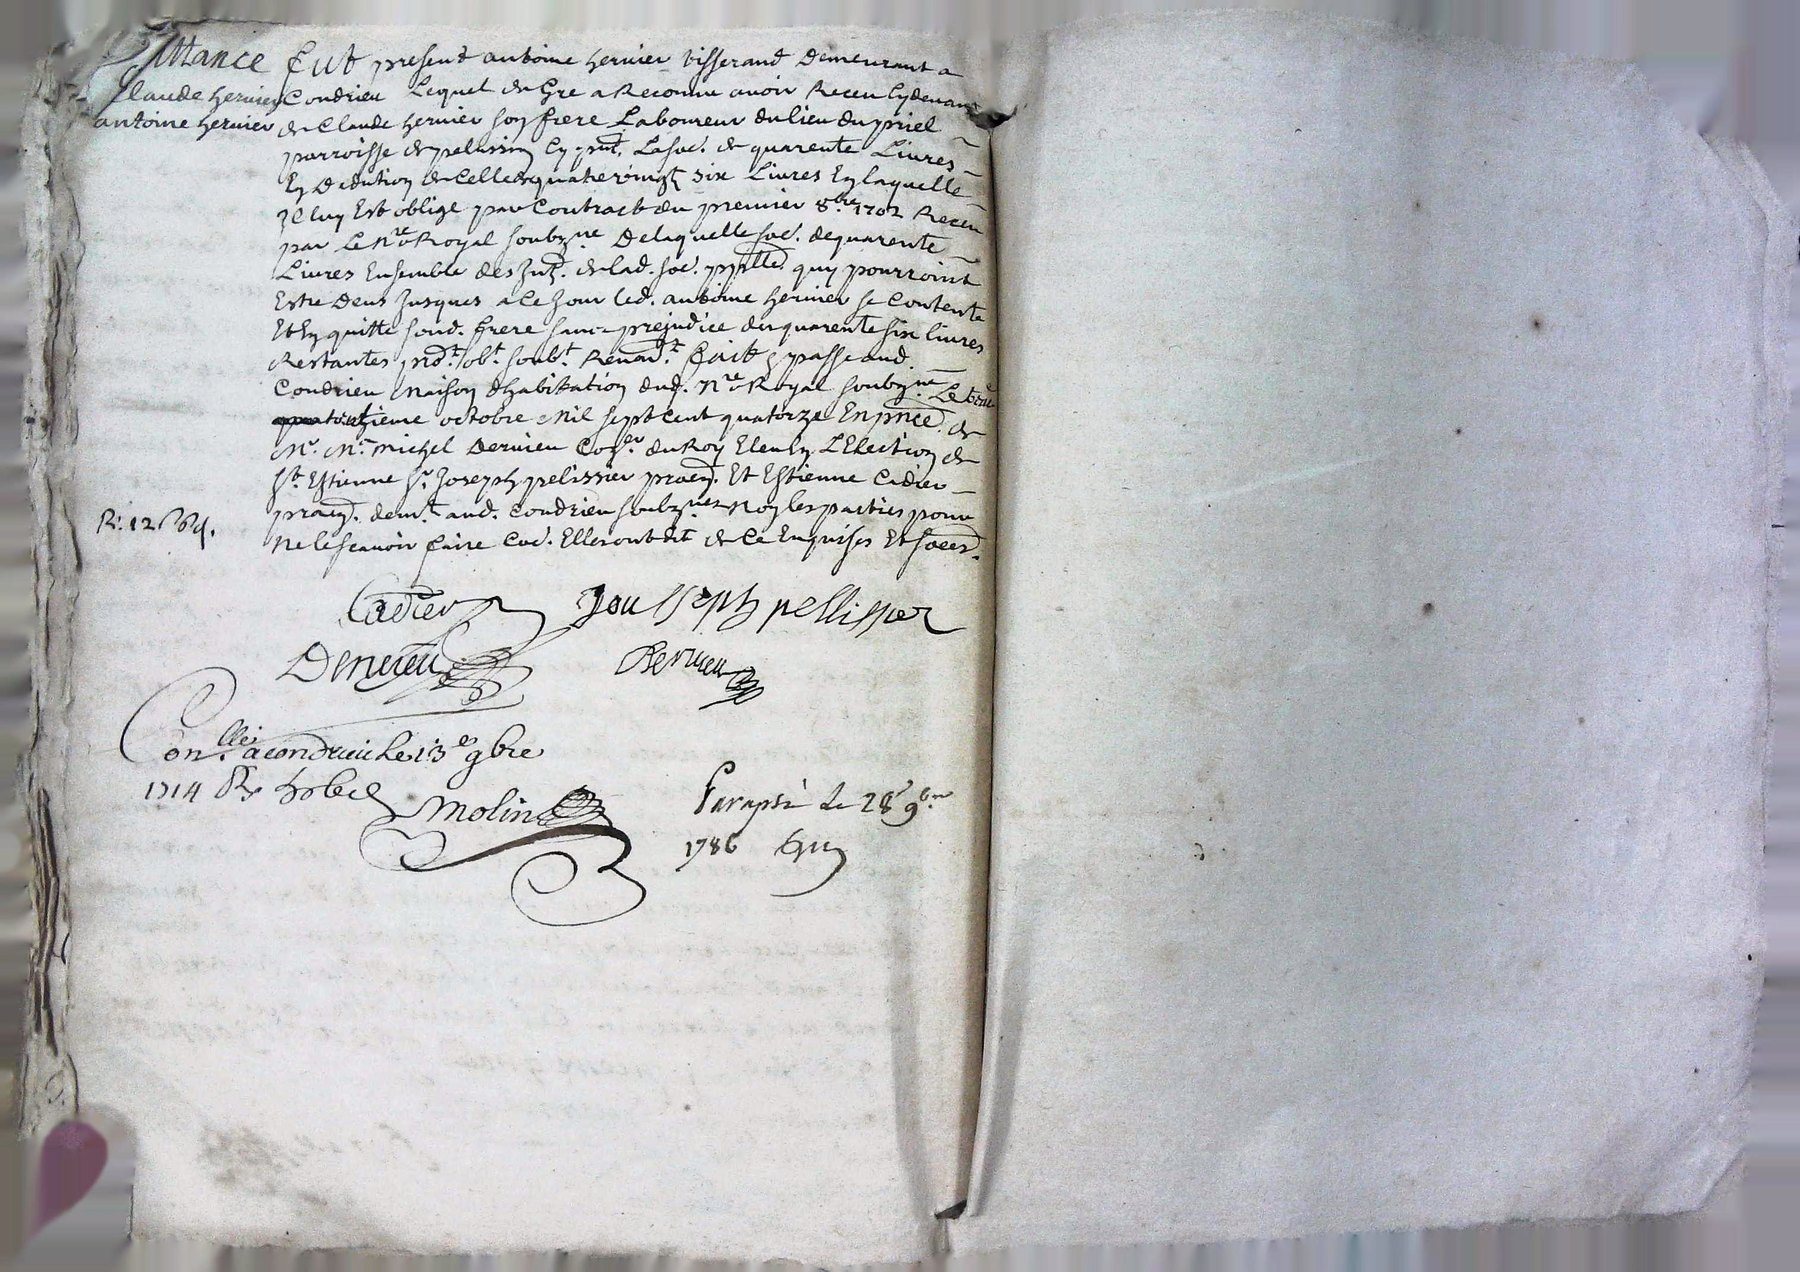 Quittance
Claude hervier
antoine hervier
Fut present antoine hervier tisserand demeurant a
Condrieu Lequel de Gré a Reconnu avoir Receu cydevant
de Claude hervier son frere Laboureur du lieu du priel
parroisse de pelussin cy pnt. La soe. de quarente Livres
En dedution de celle de quatrevingt six Livres En laquelle
Il luy Est oblige par Contract du premier 8bre 1702 Receu
par Le nre Royal soubzne Delaquelle soe. de quarente
Livres Ensemble des Int. de lad. soe. pplle quy pourroint
Estre deus Jusques a ce Jour led. antoine hervier se contente
Et En quitte sond. frere sans prejudice des quarente six livres
Restantes fait & passe aud.
Condrieu maison dhabitation dud. nre Royal soubzne Le
octobre mil sept cent quatorze En pnce. de
Mr. Me. michel Dervieu Coer. du Roy Eleu En L'Election de
St. Estienne Sr. Joseph pelissier praen. Et Estienne Cadier
praen. demt. aud. Condrieu soubznes non les parties pour
ne le scavoir faire Coe. Elles ont dit de ce Enquises Et soees.
R. 12 s 6 d.
Cadier Jousseph pellissier
Dervieu Dervieu
Conllé a condrieu Le 13e 9bre
1714 Rx Molin
Paraphé le 28 9bre
1786